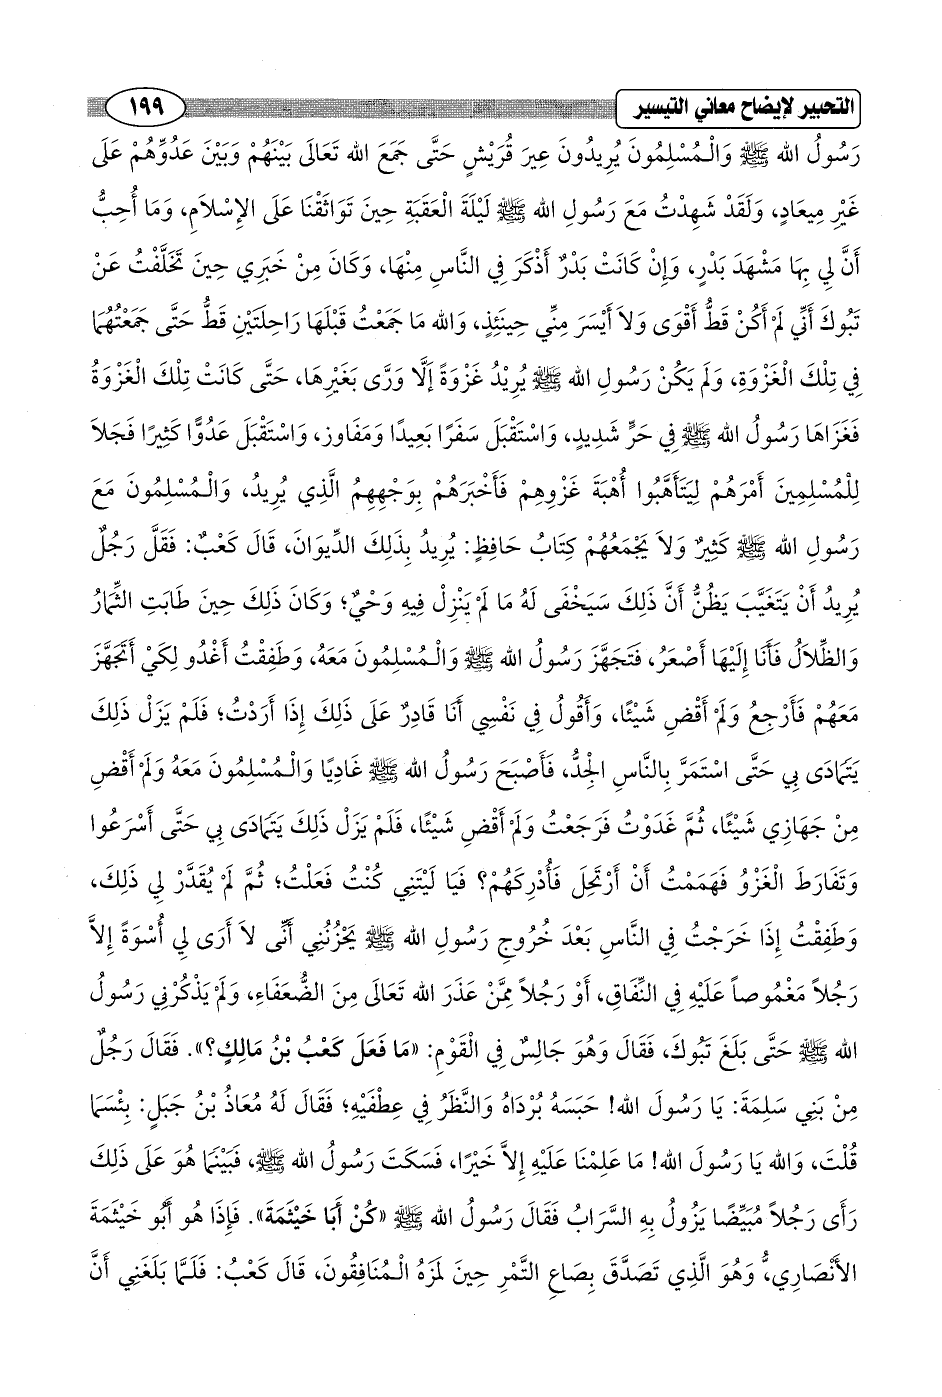 التحبير لإيضاح معاني التيسير ١٩٩
رَسُولُ الله ﷺ وَالْـمُسْلِمُونَ يُرِيدُونَ عِيرَ قُرَيْشٍ حَتَّى جَمَعَ الله تَعَالَى بَيْنَهُمْ وَبَيْنَ عَدُوِّهُمْ عَلَى
غَيْرِ مِيعَادٍ، وَلَقَدْ شَهِدْتُ مَعَ رَسُولِ الله ﷺ لَيْلَةَ الْعَقَبَةِ حِينَ تَوَاثَقْنَا عَلَى الإِسْلاَمِ، وَمَا أُحِبُّ
أَنَّ لِي بِهَا مَشْهَدَ بَدْرٍ، وَإِنْ كَانَتْ بَدْرٌ أَذْكَرَ فِي النَّاسِ مِنْهَا، وَكَانَ مِنْ خَبَرِي حِينَ تَخَلَّفْتُ عَنْ
تَبُوكَ أَنِّي لَمْ أَكُنْ قَطُّ أَقْوَى وَلاَ أَيْسَرَ مِنِّي حِينَئِذٍ، وَالله مَا جَمَعْتُ قَبْلَهَا رَاحِلَتَيْنِ قَطُّ حَتَّى جَمَعْتُهُمَا
فِي تِلْكَ الْغَزْوَةِ، وَلَمْ يَكُنْ رَسُولُ الله ﷺ يُرِيْدُ غَزْوَةً إَلَّا وَرَّى بَغَيْرِهَا، حَتَّى كَانَتْ تِلْكَ الْغَزْوَةُ
فَغَزَاهَا رَسُولُ الله ﷺ فِي حَرٍّ شَدِيدٍ، وَاسْتَقْبَلَ سَفَرًا بَعِيدًا وَمَفَاوز، وَاسْتَقْبَلَ عَدُوًّا كَثِيرًا فَجَلاَ
لِلْمُسْلِمِينَ أَمْرَهُمْ لِيَتَأَهَّبُوا أُهْبَةَ غَزْوِهِمْ فَأَخْبَرَهُمْ بِوَجْهِهِمُ الَّذِي يُرِيدُ، وَالْـمُسْلِمُونَ مَعَ
رَسُولِ الله ﷺ كَثِيرٌ وَلاَ يَجْمَعُهُمْ كِتَابُ حَافِظٍ: يُرِيدُ بِذَلِكَ الدِّيوَانَ، قَالَ كَعْبٌ: فَقَلَّ رَجُلٌ
يُرِيدُ أَنْ يَتَغَيَّبَ يَظُنُّ أَنَّ ذَلِكَ سَيَخْفَى لَهُ مَا لَمْ يَنْزِلْ فِيهِ وَحْيٌ؛ وَكَانَ ذَلِكَ حِينَ طَابَتِ الثِّمَارُ
وَالظِّلاَلُ فَأَنَا إِلَيْهَا أَصْعَرُ، فَتَجَهَّزَ رَسُولُ الله ﷺ وَالْـمُسْلِمُونَ مَعَهُ، وَطَفِقْتُ أَغْدُو لِكَيْ أَتَجَهَّزَ
مَعَهُمْ فَأَرْجِعُ وَلَمْ أَقْضِ شَيْئًا، وَأَقُولُ فِي نَفْسِي أَنَا قَادِرٌ عَلَى ذَلِكَ إِذَا أَرَدْتُ؛ فَلَمْ يَزَلْ ذَلِكَ
يَتَمَادَى بِي حَتَّى اسْتَمَرَّ بِالنَّاسِ الْجِدُّ، فَأَصْبَحَ رَسُولُ الله ﷺ غَادِيًا وَالْـمُسْلِمُونَ مَعَهُ وَلَمْ أَقْضِ
مِنْ جَهَازِي شَيْئًا، ثُمَّ غَدَوْتُ فَرَجَعْتُ وَلَمْ أَقْضِ شَيْئًا، فَلَمْ يَزَلْ ذَلِكَ يَتَمَادَى بِي حَتَّى أَسْرَعُوا
وَتَفَارَطَ الْغَزْوُ فَهَمَمْتُ أَنْ أَرْتَحِلَ فَأُدْرِكَهُمْ؟ فَيَا لَيْتَنِي كُنْتُ فَعَلْتُ؛ ثُمَّ لَمْ يُقَدَّرْ لِي ذَلِكَ،
وَطَفِقْتُ إِذَا خَرَجْتُ فِي النَّاسِ بَعْدَ خُرُوجِ رَسُولِ الله ﷺ يَحْزُنُنِي أَنِّى لاَ أَرَى لِي أُسْوَةً إِلاَّ
رَجُلاً مَغْمُوصاً عَلَيْهِ فِي النِّفَاقِ، أَوْ رَجُلاً مِمَّنْ عَذَرَ الله تَعَالَى مِنَ الضُّعَفَاءِ، وَلَمْ يَذْكُرْنِي رَسُولُ
الله ﷺ حَتَّى بَلَغَ تَبُوكَ، فَقَالَ وَهُوَ جَالِسٌ فِي الْقَوْمِ: «مَا فَعَلَ كَعْبُ بْنُ مَالِكٍ؟». فَقَالَ رَجُلٌ
مِنْ بَنِي سَلِمَةَ: يَا رَسُولَ الله! حَبَسَهُ بُرْدَاهُ وَالنَّظَرُ فِي عِطْفَيْهِ؛ فَقَالَ لَهُ مُعَاذُ بْنُ جَبَلٍ: بِئْسَمَا
قُلْتَ، وَالله يَا رَسُولَ الله! مَا عَلِمْنَا عَلَيْهِ إِلاَّ خَيْرًا، فَسَكَتَ رَسُولُ الله ﷺ، فَبَيْنَمَا هُوَ عَلَى ذَلِكَ
رَأَى رَجُلاً مُبَيِّضًا يَزُولُ بِهِ السَّرَابُ فَقَالَ رَسُولُ الله ﷺ «كُنْ أَبَا خَيْثَمَةَ». فَإِذَا هُو أَبُو خَيْثَمَةَ
الأَنْصَارِي، وَهُوَ الَّذِي تَصَدَّقَ بِصَاعِ التَّمْرِ حِينَ لَمَزَهُ الْـمُنَافِقُونَ، قَالَ كَعْبُ: فَلَمَّا بَلَغَنِي أَنَّ